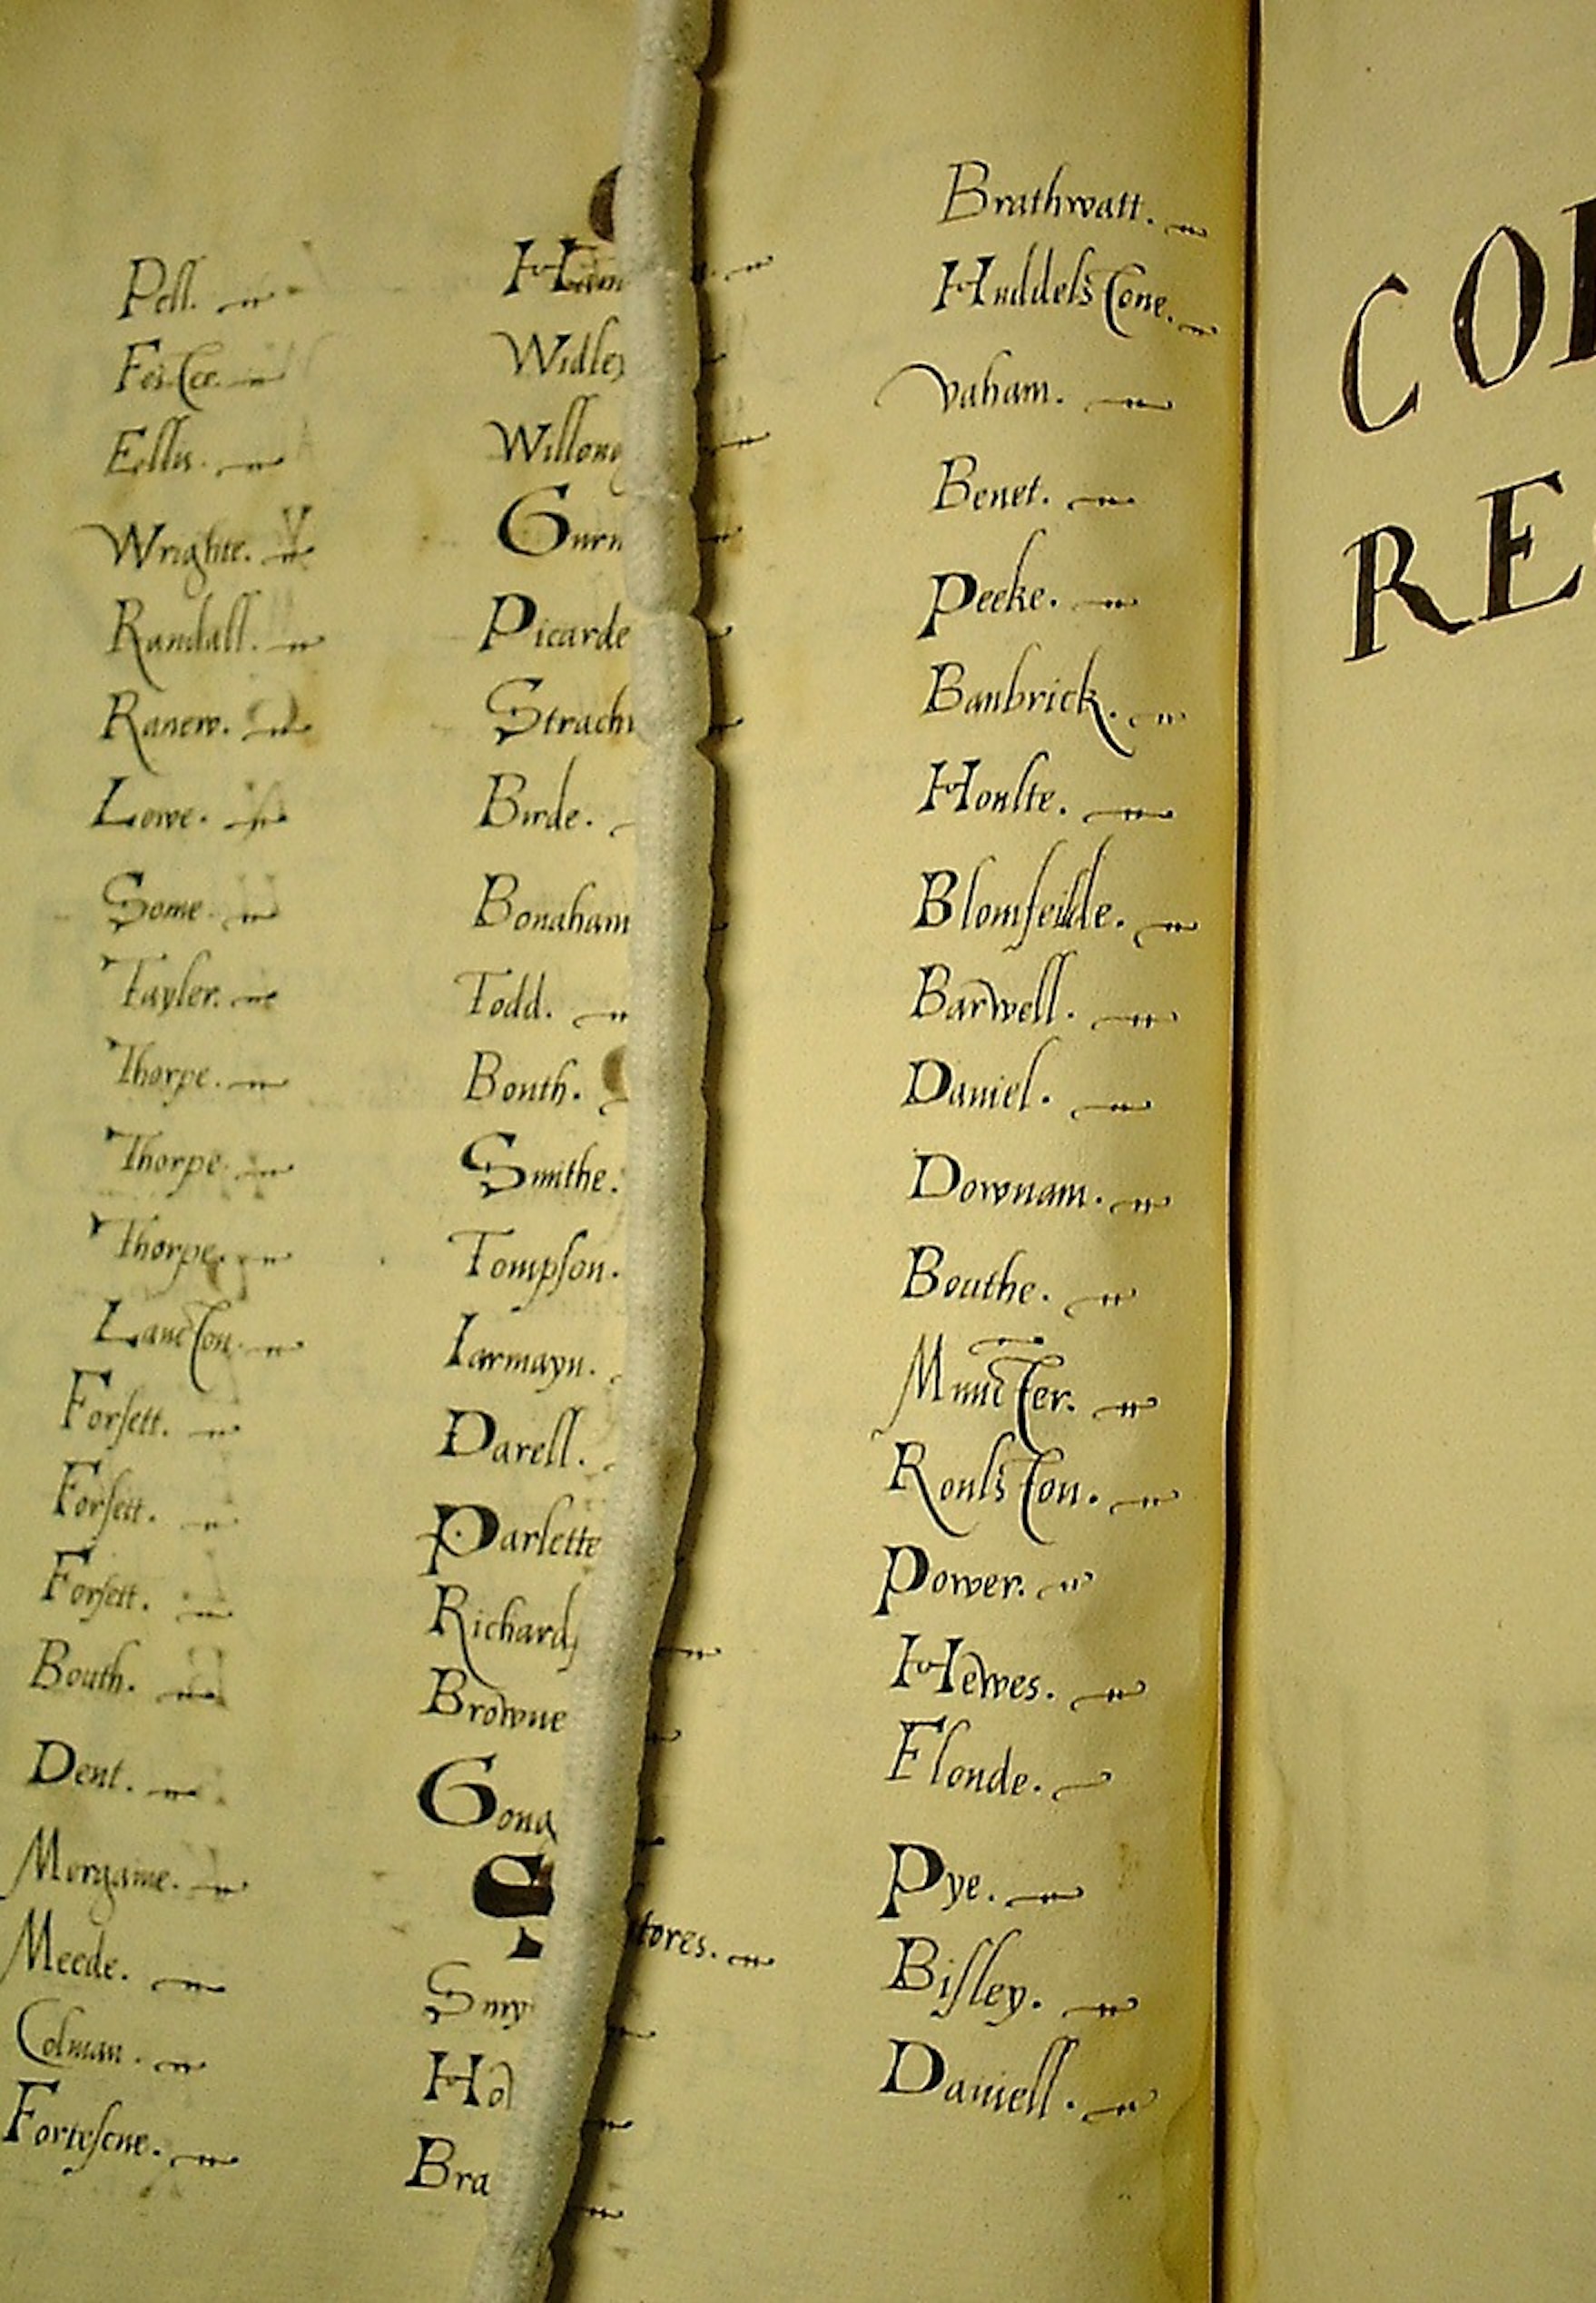 Pell.
Foster.
Ellis.
Wrighte.
Randall.
Ranew.
Lowe.
Some.
Tayler.
Thorpe.
Thorpe.
Thorpe.
Lancton.
Forsett.
Forsett.
Forsett.
Bouth.
Dent.
Morgaine.
Meede.
Colman.
Fortescue.
Widley
Picarde
Birde.
Bonaham
Todd.
Bouth.
Smithe.
Tompson.
Iarmayn.
Darell.
Parlette
Richard
Browne
Gona
S tores.
Smy
Hol
Bra
Brathwatt.
Huddelstone.
Vaham.
Benet.
Peeke.
Banbrick.
Houlte.
Blomfeilde.
Barwell.
Daniel.
Downam.
Bouthe.
Muncter.
Roulston.
Power.
Hewes.
Floude.
Pye.
Bisley.
Daniell.
CO
RE